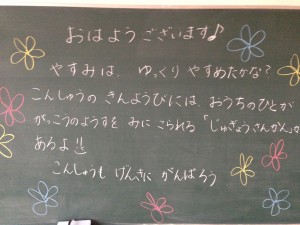 おはようございます♪
やすみは、ゆっくり やすめたかな?
こんしゅうの きんようびには、おうちのひとが
がっこうのようすを みに こられる「じゅぎょうさんかん」が
あるよ!!
こんしゅうも げんきに がんばろう